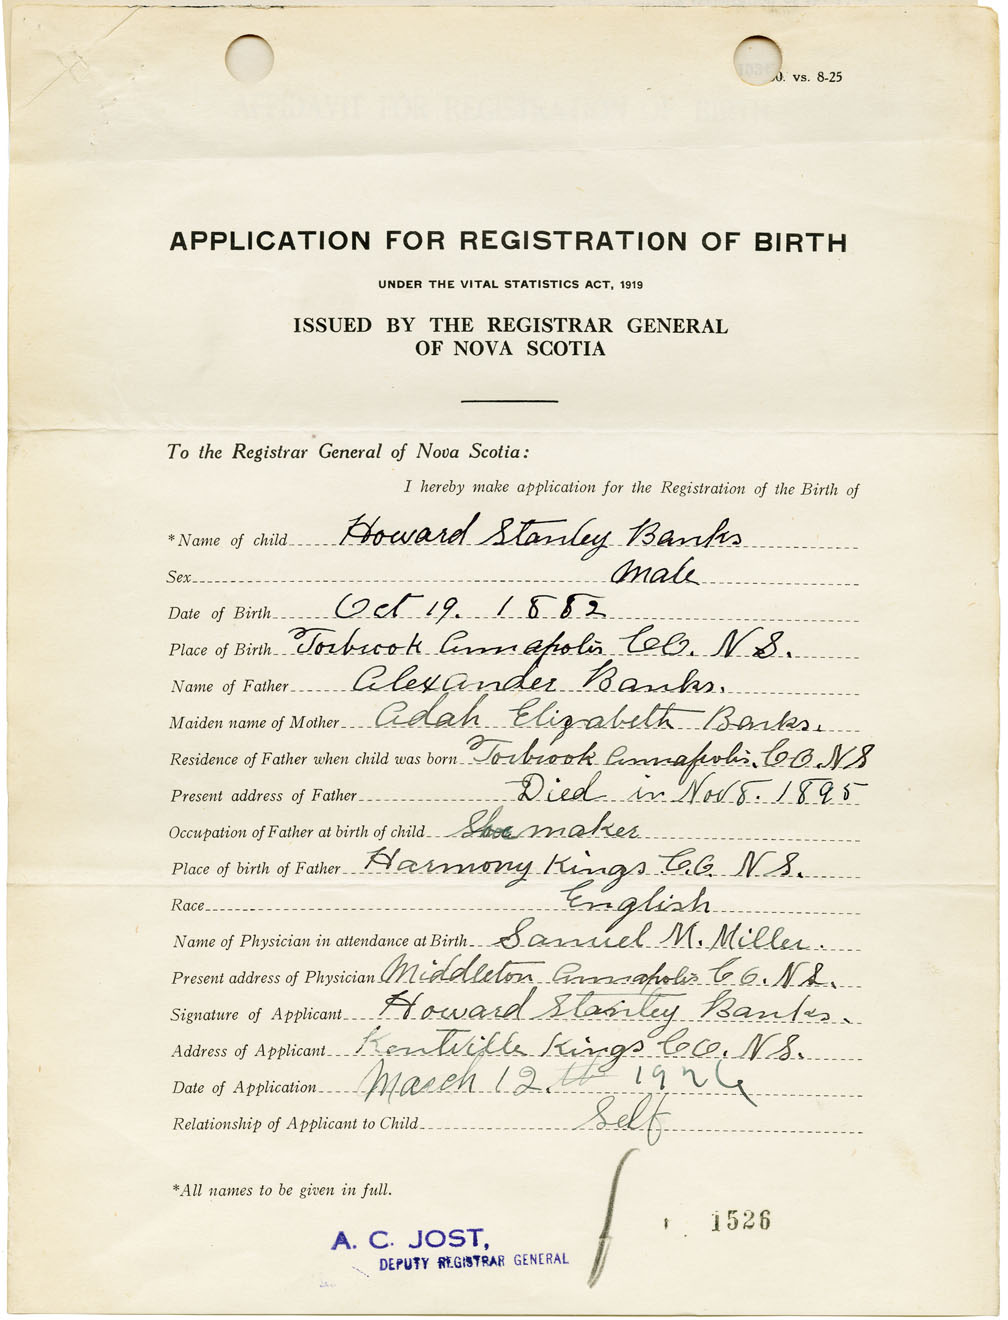 0. vs. 8-25
APPLICATION FOR REGISTRATION OF BIRTH
UNDER THE VITAL STATISTICS ACT, 1919
ISSUED BY THE REGISTRAR GENERAL
OF NOVA SCOTIA
To the Registrar General of Nova Scotia:
I hereby make application for the Registration of the Birth of
*Name of child Howard Stanley Banks
Sex Male
Date of Birth Oct 19. 1882
Place of Birth Torbrook Annapolis CO. N S.
Name of Father Alexander Banks.
Maiden name of Mother Adah Elizabeth Banks.
Residence of Father when child was born Torbrook Annapolis. CO. N S
Present address of Father Died in Nov 8. 1895
Occupation of Father at birth of child Shoe maker
Place of birth of Father Harmony Kings C.O. N S.
Race English
Name of Physician in attendance at Birth Samuel M. Miller.
Present address of Physician Middleton Annapolis C O. N S.
Signature of Applicant Howard Stanley Banks.
Address of Applicant Kentville Kings CO. N S.
Date of Application March 12. th 1926
Relationship of Applicant to Child Self
*All names to be given in full.
1526
A. C. JOST,
DEPUTY REGISTRAR GENERAL